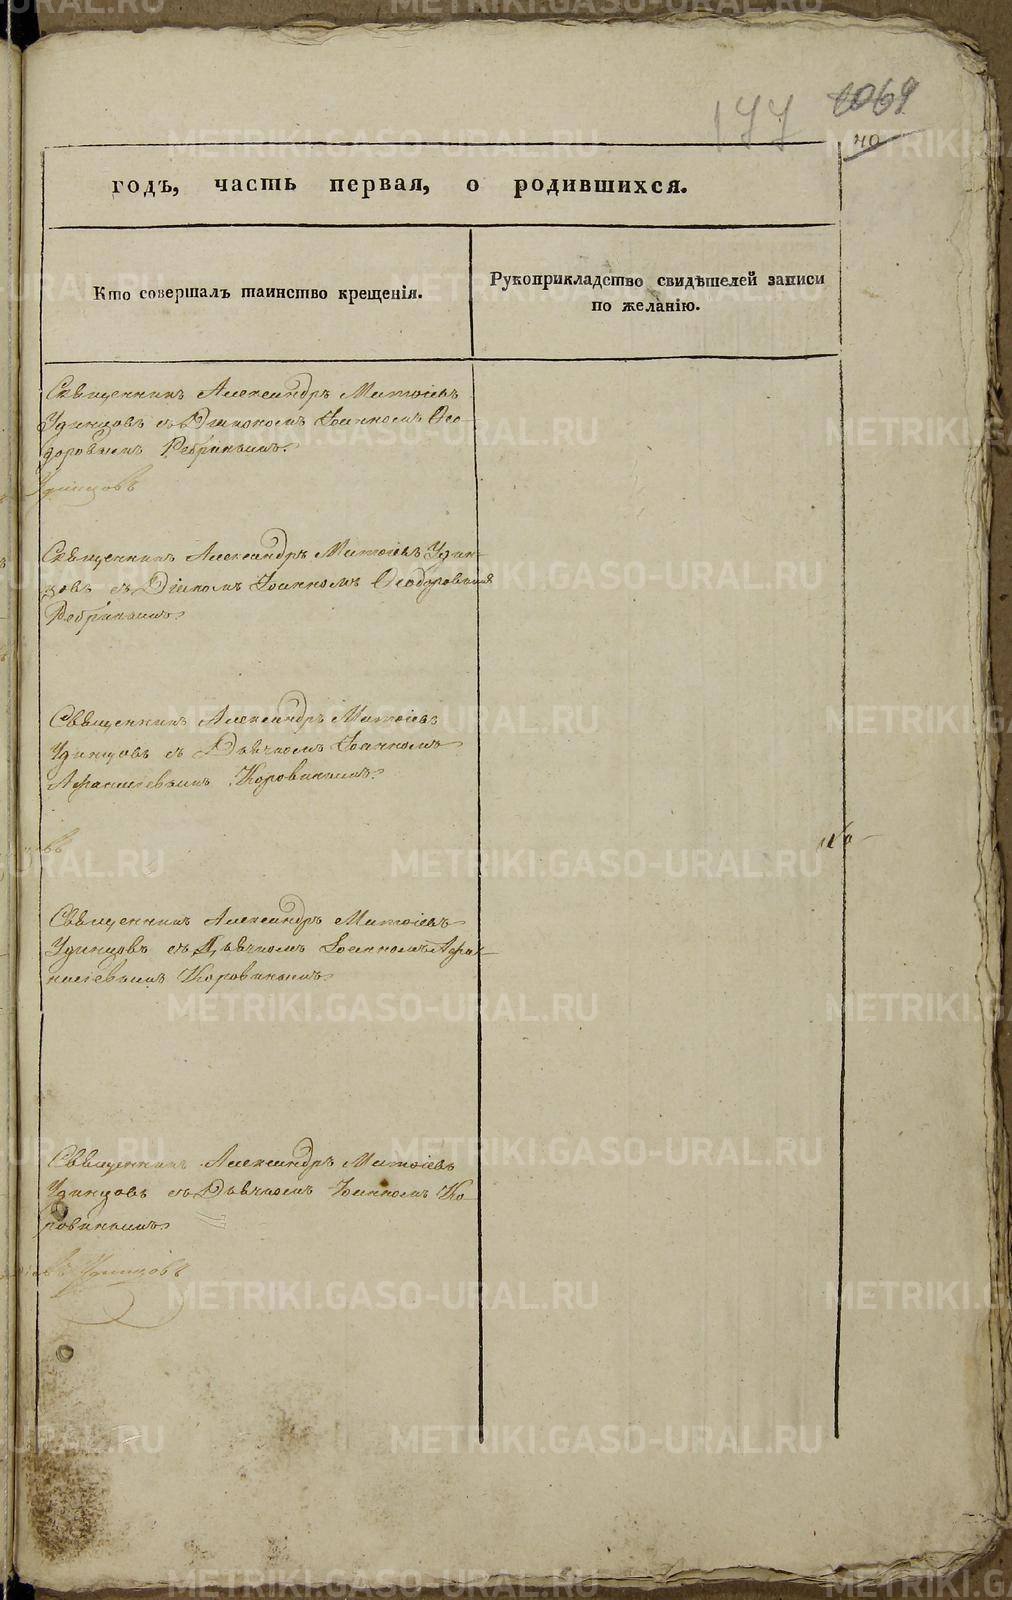 177
1069
40
годъ, часть первая, о родившихся.
Кто совершалъ таинство крещенія.
Рукоприкладство свидѣтелей записи
по желанію.
Священникъ Александръ Матѳіевъ
Удинцовъ съ Діакономъ Іоанномъ Ѳео-
доровымъ Ребринымъ.
Удинцовъ
Священникъ Александръ Матѳіевъ Удин-
цовъ съ Діакомъ Іоанномъ Ѳеодоровымъ
Ребринымъ.
Священникъ Александръ Матѳіевъ
Удинцовъ съ Дьячкомъ Іоанномъ
Афанасіевымъ Коровинымъ.
Священникъ Александръ Матѳіевъ
Удинцовъ съ Дьячкомъ Іоанномъ Афа-
насіевымъ Коровинымъ.
Священникъ Александръ Матѳіевъ
Удинцовъ съ Дьячкомъ Іоанномъ Ко-
ровинымъ.
Удинцовъ
METRIKI.GASO-URAL.RU